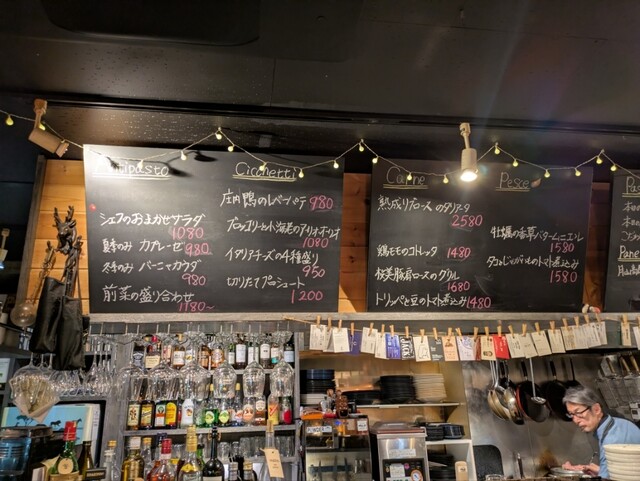 Antipasto
シェフのおまかせサラダ
1080
夏季のみ カプレーゼ 980
冬季のみ バーニャカウダ
980
前菜の盛り合わせ
1180~
Cicchetti
庄内鴨のレバーパテ 980
ブロッコリーと小海老のアリオオーリオ
1080
イタリアチーズの4種盛り
950
切りたてプロシュート
1200
Carne
熟成リブロースのタリアータ
2580
鶏モモのコトレッタ 1480
桜美豚肩ロースのグリル
1680
トリッパと豆のトマト煮込み 1480
Pesce
牡蠣の香草バタームニエル
1580
タコとじゃがいものトマト煮込み
1580
Pane